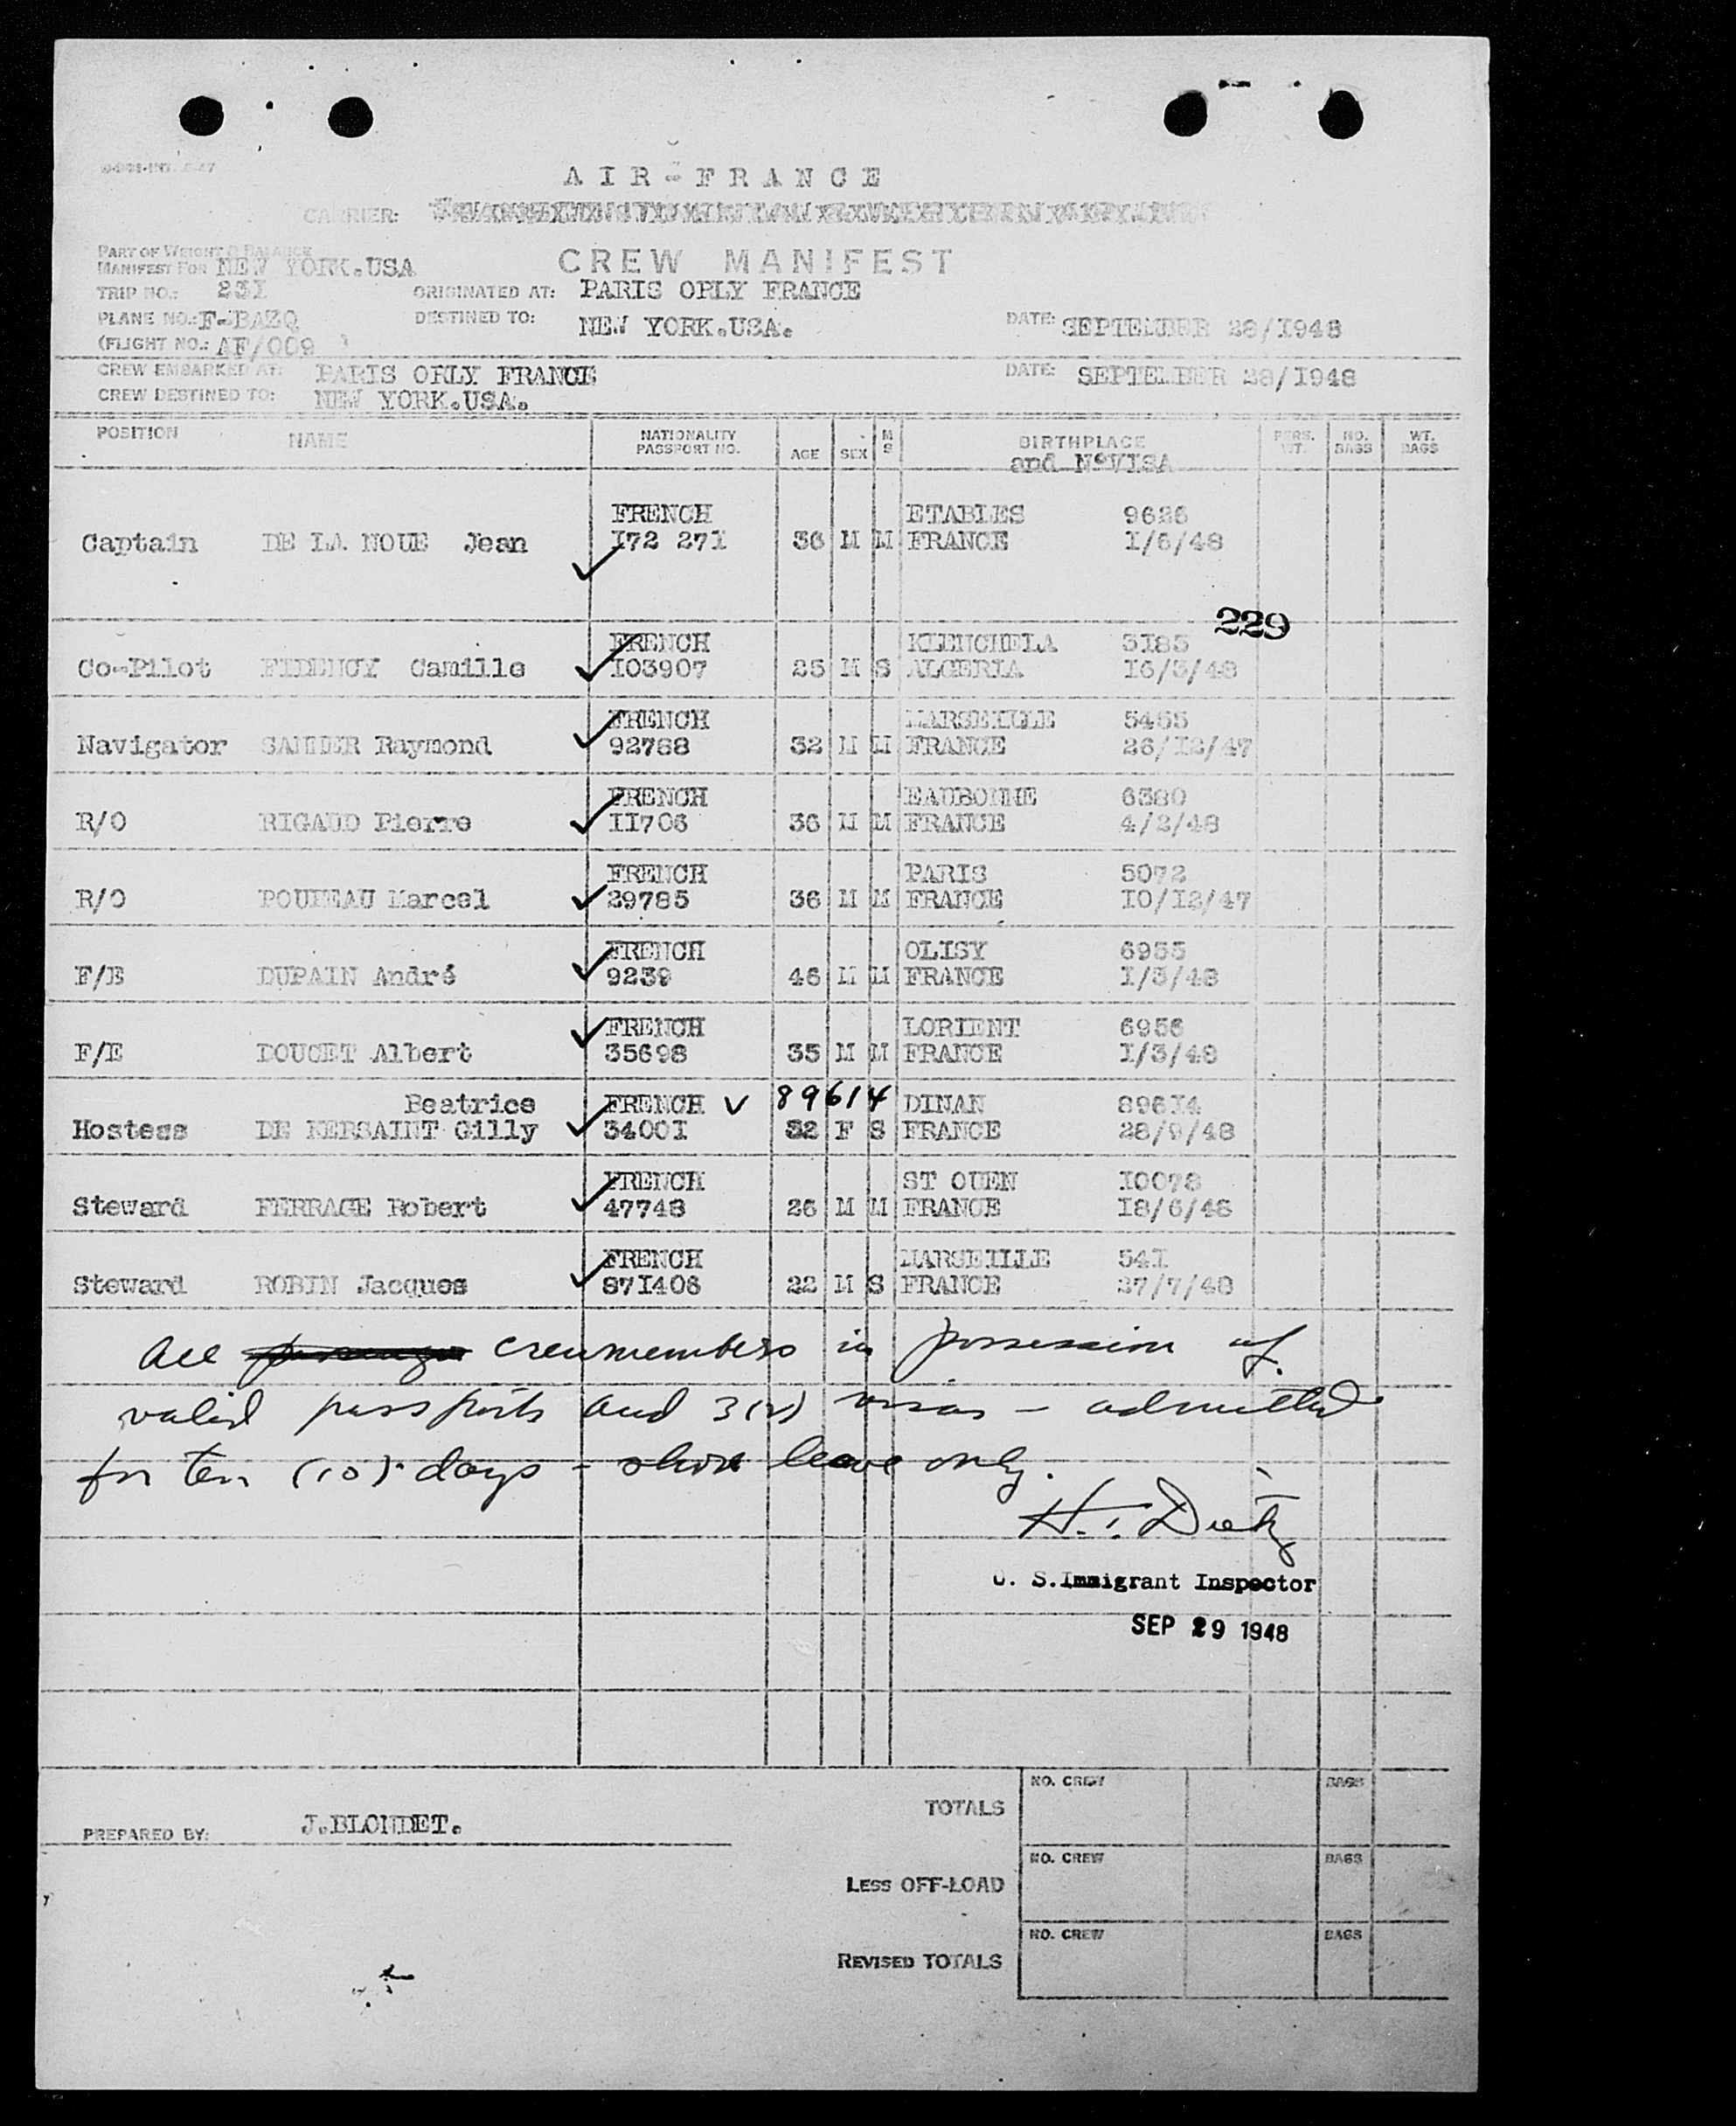 AIR-FRANCE
CARRIER:
PART OF WEIGHT & BALANCE
MANIFEST FOR NEW YORK.USA
CREW MANIFEST
TRIP NO.: 231 ORIGINATED AT: PARIS ORLY FRANCE
PLANE NO.: F-BAZQ DESTINED TO: NEW YORK.USA. DATE: SEPTEMBER 28/1948
(FLIGHT NO.: AF/009 )
CREW EMBARKED AT: PARIS ORLY FRANCE DATE: SEPTEMBER 28/1948
CREW DESTINED TO: NEW YORK.USA.
POSITION NAME NATIONALITY PASSPORT NO. AGE SEX M S BIRTHPLACE PERS. WT. NO. BAGS WT. BAGS
and N°VISA
FRENCH ETABLES 9626
Captain DE LA NOUE Jean I72 27I 36 M M FRANCE I/6/48
229
FRENCH KLENCHELA 3I83
Co-Pilot FIDENCY Camille I03907 25 M S ALGERIA I6/3/48
FRENCH MARSEILLE 5465
Navigator Raymond 92768 32 M M FRANCE 26/I2/47
FRENCH EAUBONNE 6380
R/O RIGAUD Pierre II706 36 M M FRANCE 4/2/48
FRENCH PARIS 5072
R/O Marcel 29785 36 M M FRANCE I0/I2/47
FRENCH OLISY 6955
F/E DUPAIN André 9239 46 M M FRANCE I/3/48
FRENCH LORIENT 6956
F/E DOUCET Albert 35698 35 M M FRANCE I/3/48
Beatrice FRENCH ✓ 89614 DINAN 896I4
Hostess DE KERSAINT Gilly 3400I 32 F S FRANCE 28/9/48
FRENCH ST OUEN I0078
Steward FERRAGE Robert 47748 26 M M FRANCE I8/6/48
FRENCH MARSEILLE 54I
Steward ROBIN Jacques 87I406 22 M S FRANCE 27/7/48
All crewmembers in possession of
valid passports and 3(2) visas – admitted
for ten (10) days – shore leave only.
H. Dietz
U. S.Immigrant Inspector
SEP 29 1948
NO. CREW BAGS
TOTALS
PREPARED BY: J.BLONDET.
NO. CREW BAGS
LESS OFF-LOAD
NO. CREW BAGS
REVISED TOTALS